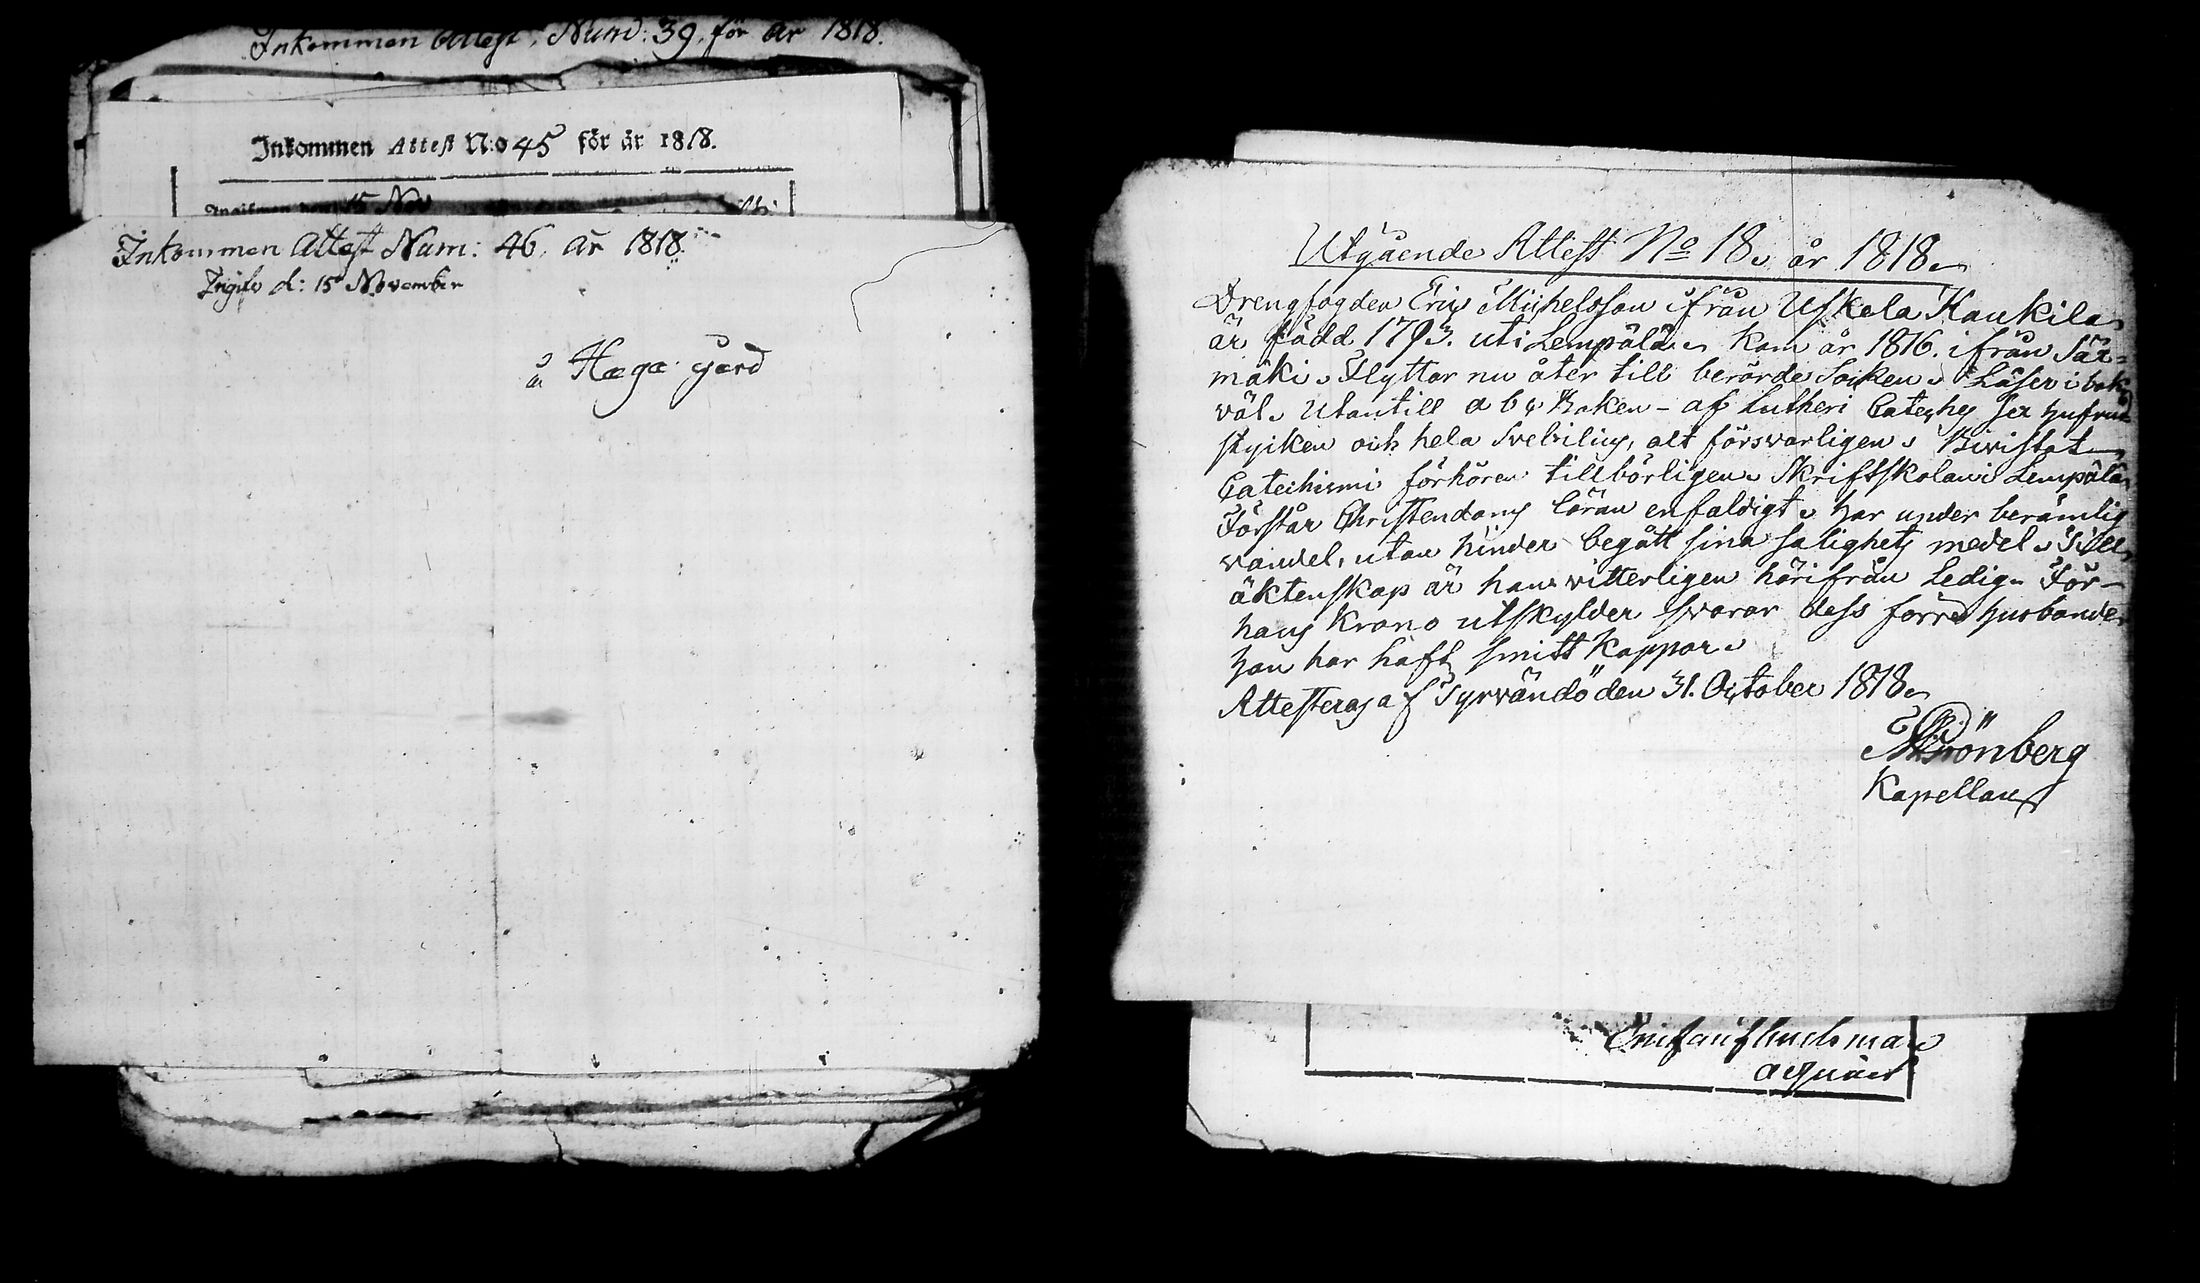 Inkommen Attest, Num: 39. för år 1818.
Inkommen Attest N:o 45 för år 1818.
15 Nov
Inkommen Attest Num: 46, år 1818.
Ingifv d: 15 November
å Haga gård
Utgående Attest No 18. år 1818.
Drengfogden Eric Michelsson ifrån Uskela Kaukila
är född 1793. uti Lempälä. Kom år 1816. ifrån Säx=
mäki. Flyttar nu åter till berörde Socken. Läser i bok
väl. Utantill a b c Boken - af Lutheri Cateches sex hufvud
stycken och hela Svebilius, alt försvarligen. Bivistat
Catechismi förhören tillbörligen. Skriftskolan i Lempälä.
Förstår Christendoms läran enfaldigt. Har under berömlig
vandel, utan hinder begått sina salighets medel. Till
äktenskap är han vitterligen härifrån Ledig. För
hans Krono utskylder svarar dess förre husbonde
Han har haft smitt Koppor.
Attesteras af Tyrvändö den 31. October 1818.
Grönberg
Kapellan